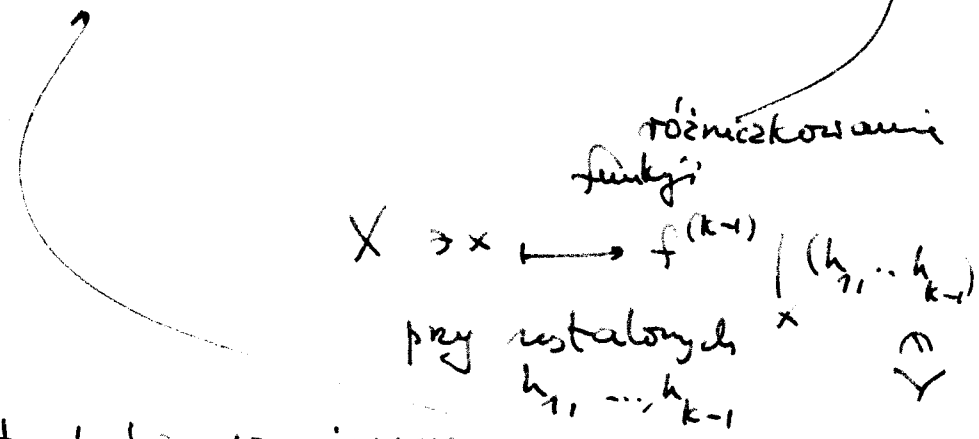 różniczkowanie
funkcji
X ∋ x ⟼ f^{(k-1)}|_x (h_1, .. h_{k-1})
przy ustalonych
h_1, ..., h_{k-1}
∈ Y